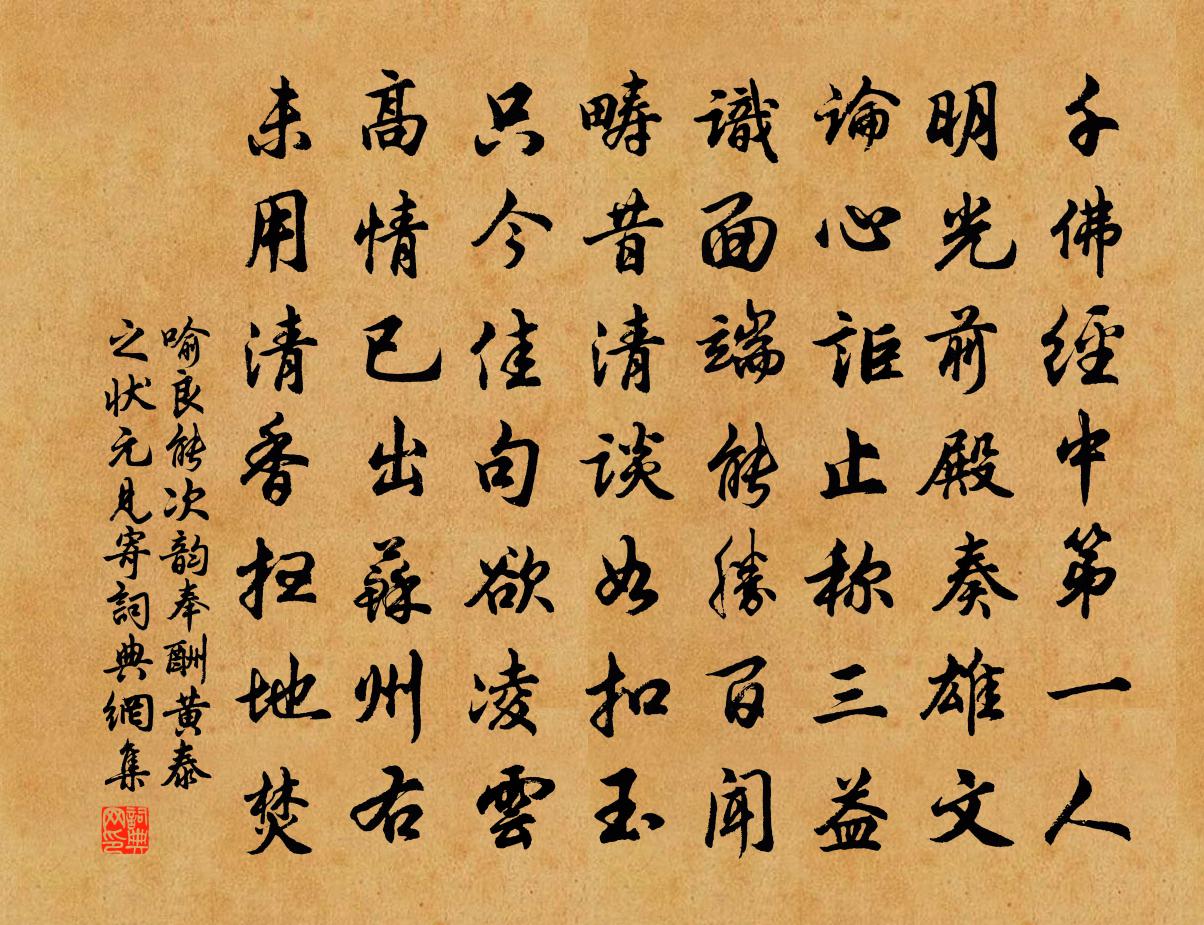 千佛經中第一人
明光前殿奏雄文
論心詎止称三益
識面端能勝百聞
疇昔清談如扣玉
只今佳句欲凌雲
高情已出蘇州右
未用清香扫地焚
喻良能次韵奉酬黄泰
之状元見寄詞典網集
詞典
网印